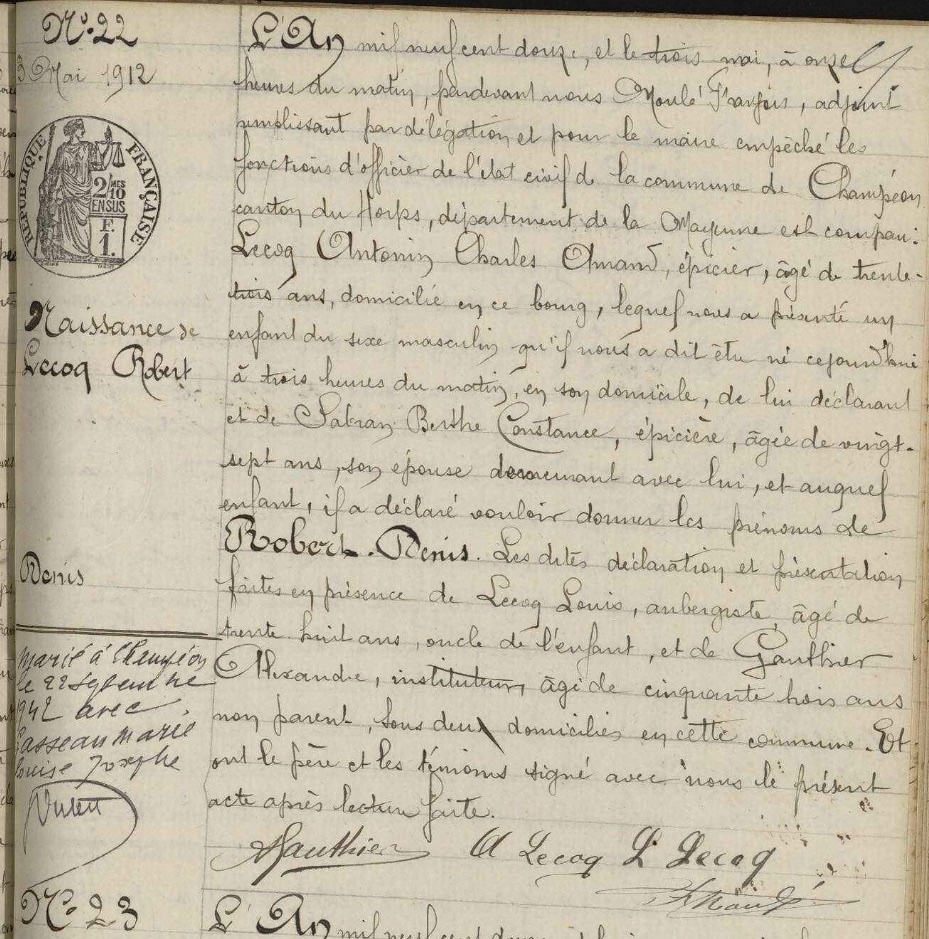 No. 22
3 Mai 1912
RÉPUBLIQUE FRANÇAISE
2/10 MES
EN SUS
F.
1.
Naissance de
Lecoq Robert
Denis
marié à Champéon
le 22 Septembre
1942 avec
marie
Louise Josèphe
L'An mil neuf cent douze, et le trois mai, à onze
heures du matin, pardevant nous Moulé François, adjoint
remplissant par délégation et pour le maire empêché les
fonctions d'officier de l'état civil de la commune de Champéon
canton du Horps, département de la Mayenne est comparu:
Lecoq Antonin Charles Amand, épicier, âgé de trente-
trois ans, domicilié en ce bourg, lequel nous a présenté un
enfant du sexe masculin qu'il nous a dit être né cejourd'hui
à trois heures du matin, en son domicile, de lui déclarant
et de Sabran Berthe Constance, épicière, âgée de vingt-
sept ans, son épouse demeurant avec lui, et auquel
enfant, il a déclaré vouloir donner les prénoms de
Robert-Denis. Les dites déclaration et présentation
faites en présence de Lecoq Louis, aubergiste, âgé de
trente huit ans, oncle de l'enfant, et de Gauthier
Alexandre, instituteur, âgé de cinquante trois ans
non parent, tous deux domiciliés en cette commune. Et
ont le père et les témoins signé avec nous le présent
acte après lecture faite.
AGauthier A Lecoq L Lecoq
No. 23
L'An mil neuf cent